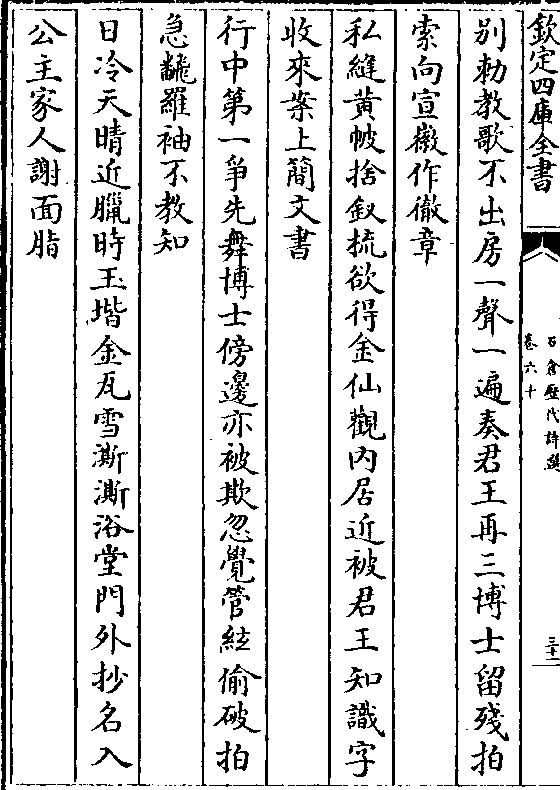 欽定四庫全書
石倉歷代詩選
卷六十
三十二
別勅教歌不出房一聲一遍奏君王再三博士留殘拍
索向宣徽作徹章
私縫黃帔捨釵梳欲得金仙觀內居近被君王知識字
收來案上簡文書
行中第一爭先舞博士傍邊亦被欺忽覺管絃偷破拍
急翻羅袖不教知
日冷天晴近臘時玉堦金瓦雪澌澌浴堂門外抄名入
公主家人謝面脂